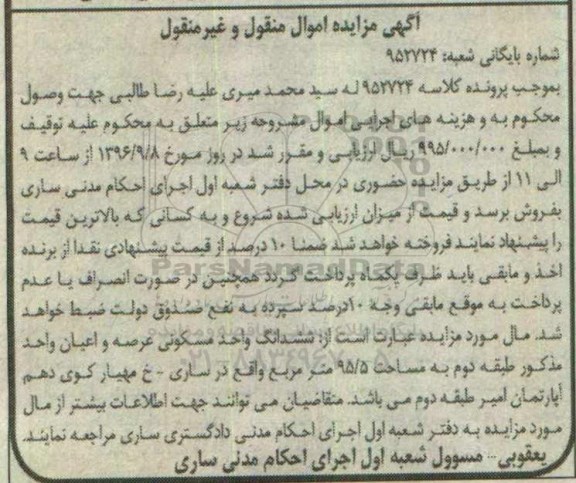 آگهی مزایده اموال منقول و غیرمنقول
شماره بایگانی شعبه: ۹۵۲۷۲۴
بموجب پرونده کلاسه ۹۵۲۷۲۴ له سید محمد میری علیه رضا طالبی جهت وصول
محکوم به و هزینه های اجرایی اموال مشروحه زیر متعلق به محکوم علیه توقیف
و بمبلغ ۹۹۵/۰۰۰/۰۰۰ ریال ارزیابی و مقرر شد در روز مورخ ۱۳۹۶/۹/۸ از ساعت ۹
الی ۱۱ از طریق مزایده حضوری در محل دفتر شعبه اول اجرای احکام مدنی ساری
بفروش برسد و قیمت از میزان ارزیابی شده شروع و به کسانی که بالاترین قیمت
را پیشنهاد نمایند فروخته خواهد شد ضمنا ۱۰ درصد از قیمت پیشنهادی نقدا از برنده
اخذ و مابقی باید ظرف یکماه پرداخت گردد همچنین در صورت انصراف یا عدم
پرداخت به موقع مابقی وجه ۱۰درصد سپرده به نفع صندوق دولت ضبط خواهد
شد. مال مورد مزایده عبارت است از: ششدانگ واحد مسکونی عرصه و اعیان واحد
مذکور طبقه دوم به مساحت ۹۵/۵ متر مربع واقع در ساری - خ مهیار کوی دهم
آپارتمان امیر طبقه دوم می باشد. متقاضیان می توانند جهت اطلاعات بیشتر از مال
مورد مزایده به دفتر شعبه اول اجرای احکام مدنی دادگستری ساری مراجعه نمایند.
یعقوبی - مسوول شعبه اول اجرای احکام مدنی ساری
ParsNamadData
۰۲۱-۸۸۳۴۹۶۷۰-۵